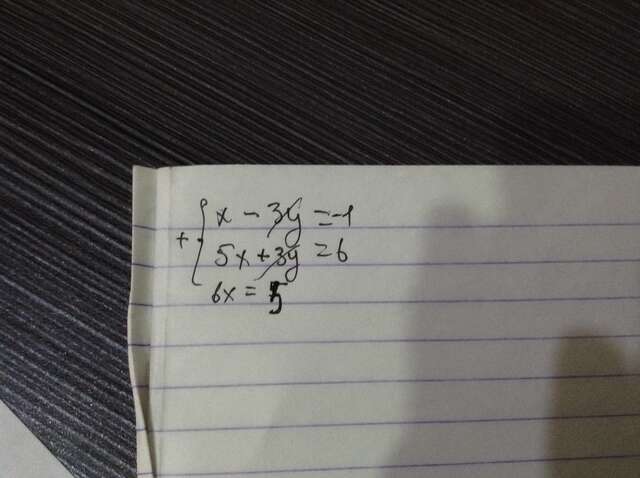 x - 3y = -1
+
5x + 3y = 6
6x = 5